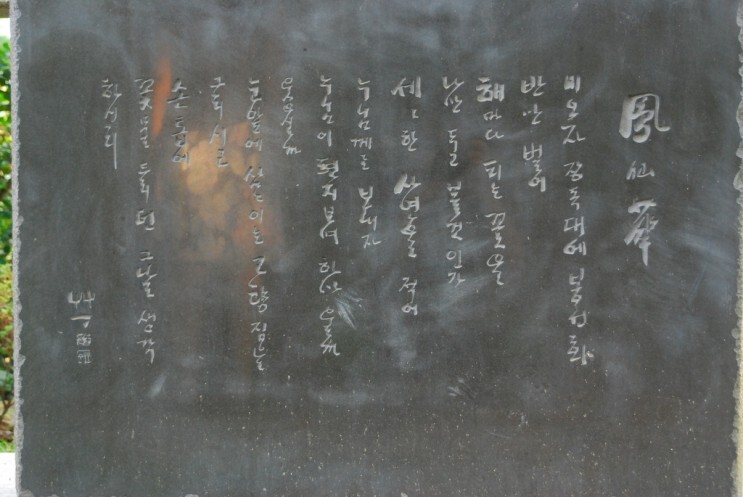 鳳仙華
비오자 장독대에 봉선화
반만 벌어
해마다 피는 꽃을
나만 두고 볼것인가
세々한 사연을 적어
누님께로 보내자
누님이 편지보며 하마 울까
웃으실까
눈앞에 삼々이는 고향집을
그리시고
손톱에
꽃물 들이던 그날 생각
하시리
艸丁